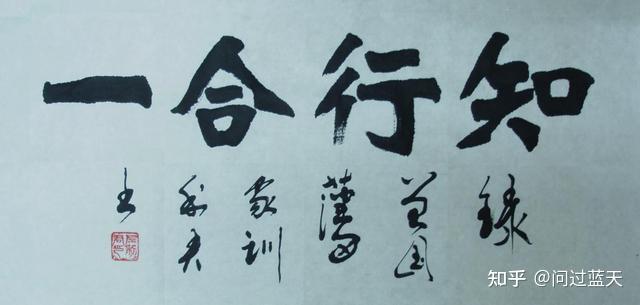 知行合一
録曾国藩家训书
知乎 @问过蓝天